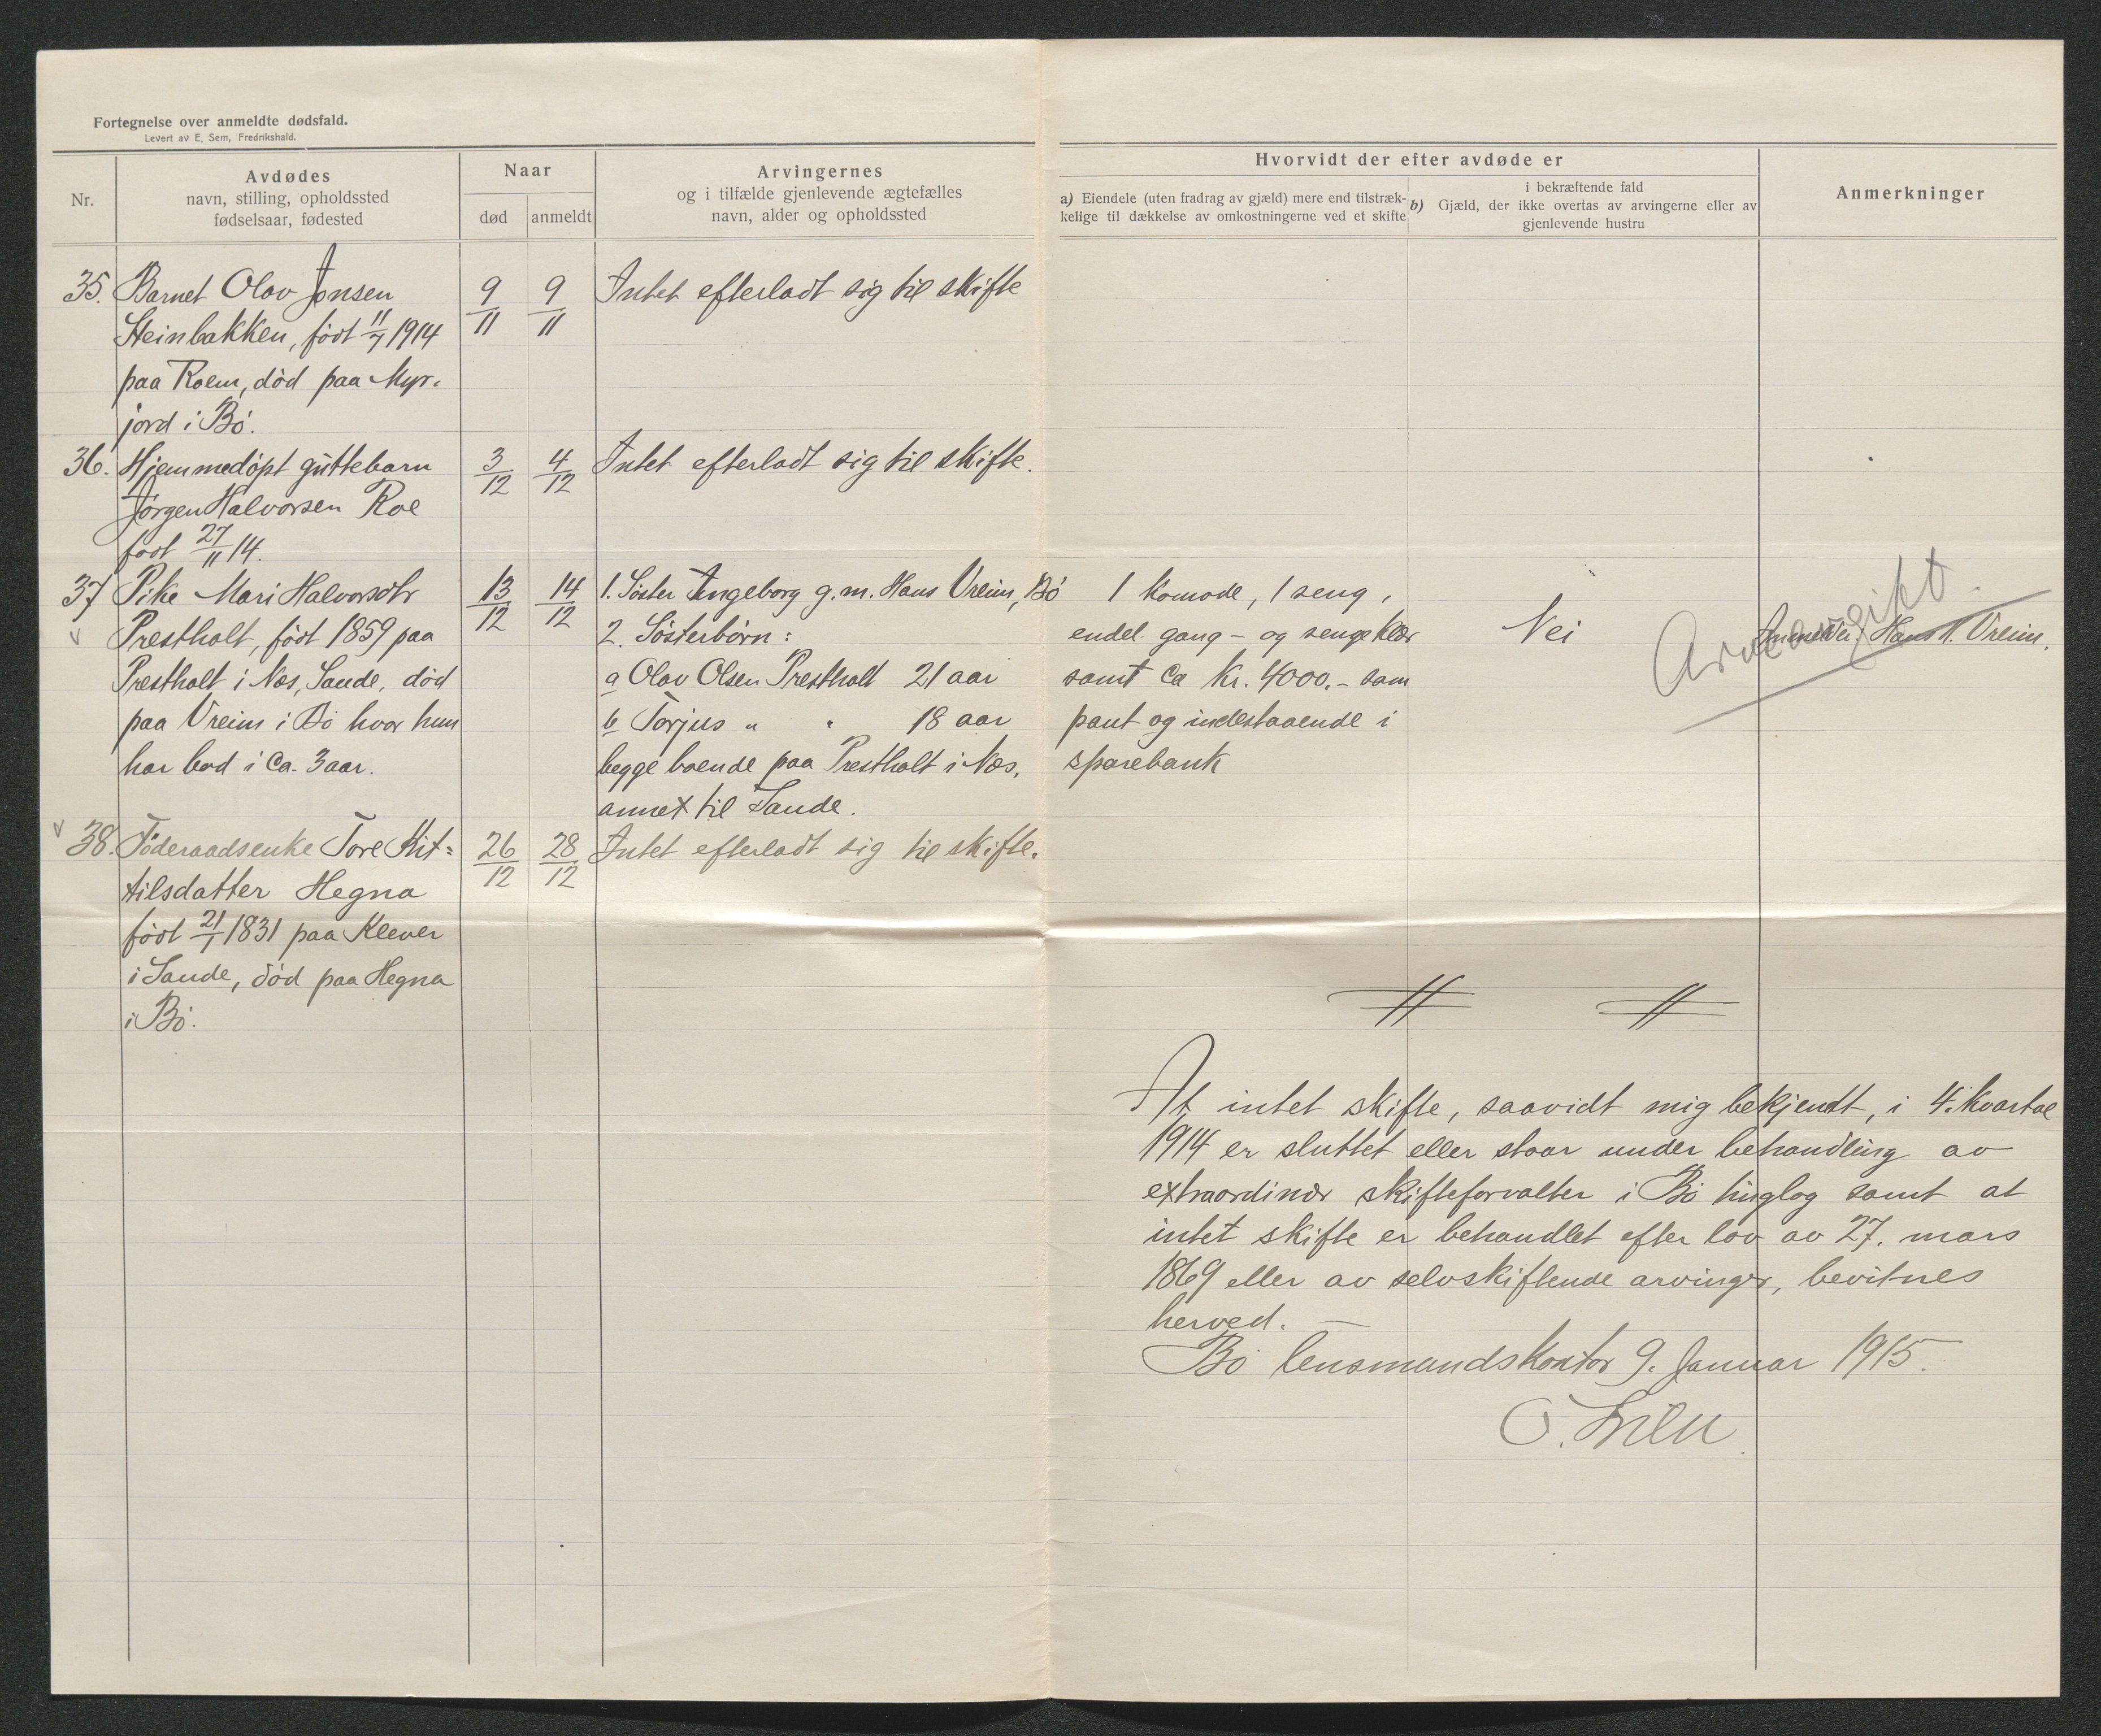 Fortegnelse over anmeldte dødsfald.
Levert av E. Sem, Fredrikshald.
Nr.
Avdødes
navn, stilling, opholdssted
fødselsaar, fødested
Naar
død
anmeldt
Arvingernes
og i tilfælde gjenlevende ægtefælles
navn, alder og opholdssted
Hvorvidt der efter avdøde er
a) Eiendele (uten fradrag av gjæld) mere end tilstræk-
kelige til dækkelse av omkostningerne ved et skifte
i bekræftende fald
b) Gjæld, der ikke overtas av arvingerne eller av
gjenlevende hustru
Anmerkninger
35. Barnet Olav Jonsen
Steinbakken, født 11/7 1914
paa Roem, død paa Myr-
jord i Bø.
9/11
9/11
Intet efterladt sig til skifte
36. Hjemmedöpt guttebarn
Jørgen Halvorsen Roe
født 27/11 14.
3/12
4/12
Intet efterladt sig til skifte.
37 Pike Mari Halvorsdtr
v Prestholt, født 1859 paa
Prestholt i Næs, Saude, død
paa Vreim i Bø hvor hun
har bod i ca. 3 aar.
13/12
14/12
1. Søster Ingeborg g. m. Hans Vreim, Bø
2. Søsterbørn:
a Olav Olsen Prestholt 21 aar
b Torjus " " 18 aar
begge boende paa Prestholt i Næs,
annex til Saude.
1 komode, 1 seng,
endel gang- og sengeklær
samt ca kr. 4000.- som
pant og indestaaende i
sparebank
Nei
Anmelder: Hans H. Vreim.
Arveavgift.
v 38. Föderaadsenke Tore Kit=
tilsdatter Hegna
født 21/1 1831 paa Klever
i Saude, død paa Hegna
i Bø.
26/12
28/12
Intet efterladt sig til skifte.
At intet skifte, saavidt mig bekjendt, i 4. kvartal
1914 er sluttet eller staar under behandling av
extraordinær skifteforvalter i Bø tinglag samt at
intet skifte er behandlet efter lov av 27. mars
1869 eller av selvskiftende arvinger, bevitnes
herved. —
Bø lensmandskontor 9. Januar 1915.